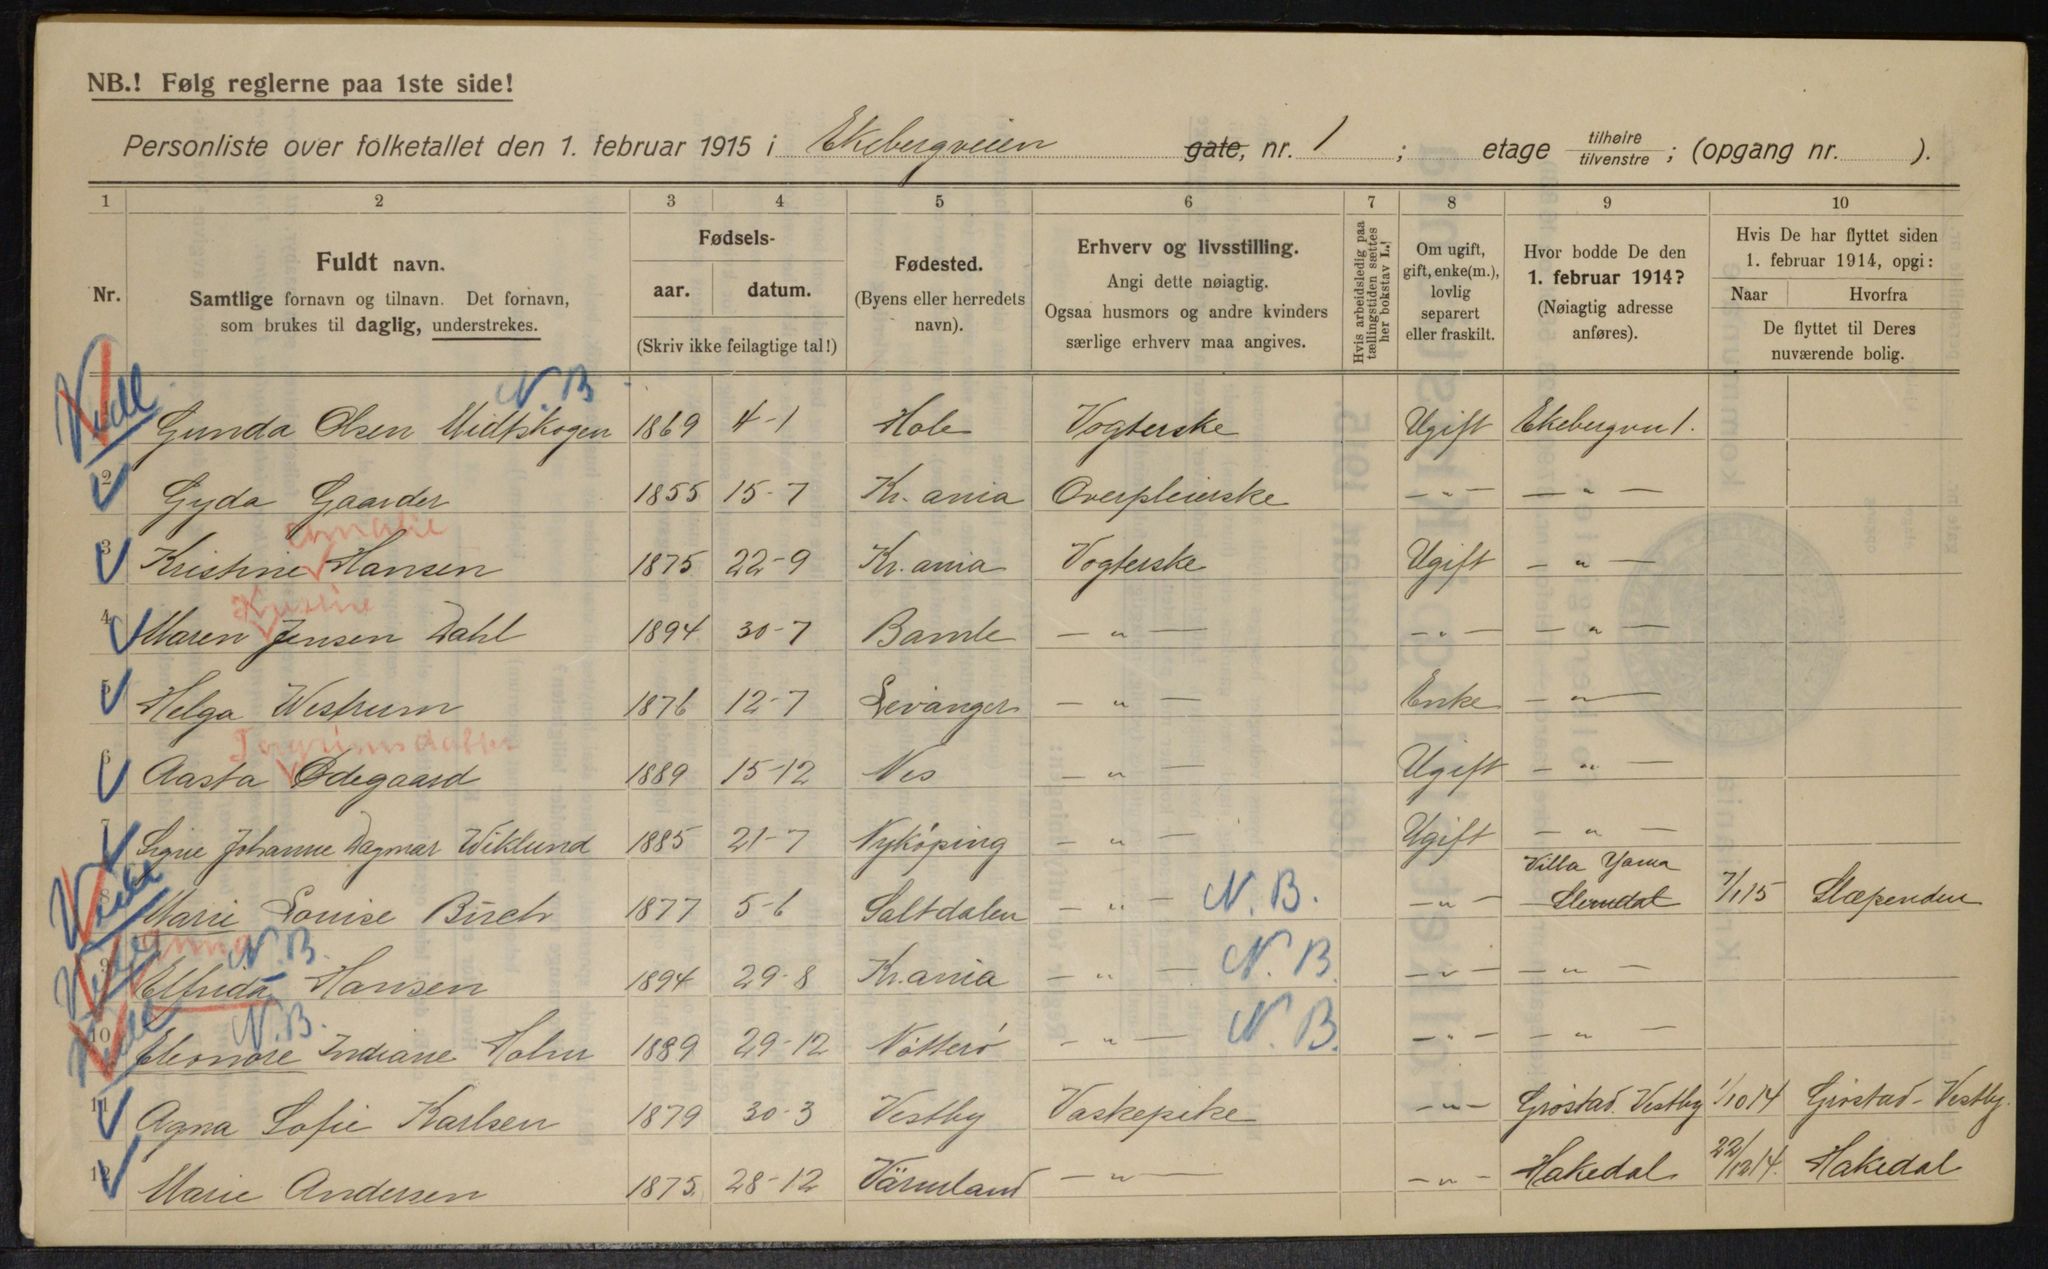 NB.! Følg reglerne paa 1ste side!
Personliste over folketallet den 1. februar 1915 i Ekebergveien gate, nr. 1 ; etage tilhøire tilvenstre ; (opgang nr. ).
1 2 3 4 5 6 7 8 9 10
Nr.
Fuldt navn.
Samtlige fornavn og tilnavn. Det fornavn,
som brukes til daglig, understrekes.
Fødsels-
aar. datum.
(Skriv ikke feilagtige tal!)
Fødested.
(Byens eller herredets
navn).
Erhverv og livsstilling.
Angi dette nøiagtig.
Ogsaa husmors og andre kvinders
særlige erhverv maa angives.
Hvis arbeidsledig paa
tællingstiden sættes
her bokstav L.!
Om ugift,
gift, enke(m.),
lovlig
separert
eller fraskilt.
Hvor bodde De den
1. februar 1914?
(Nøiagtig adresse
anføres).
Hvis De har flyttet siden
1. februar 1914, opgi:
Naar Hvorfra
De flyttet til Deres
nuværende bolig.
N.B
1 Gunda Olsen Midtskogen 1869 4-1 Hole Vogterske Ugift Ekebergvn 1.
2 Gyda Gaarder 1855 15-7 Kr.ania Overpleierske — " — — " —
Amalie
3 Kristine Hansen 1875 22-9 Kr.ania Vogterske Ugift — " —
4 Maren Jensen Dahl 1894 30-7 Bamle — " — — " — — " —
5 Helga Westrum 1876 12-7 Levanger — " — Enke — " —
6 Aasta Ødegaard 1889 15-12 Nes — " — Ugift — " —
7 Signe Johanne Dagmar Wiklund 1885 21-7 Nyköping — " — Ugift — " —
Villa Yama
8 Marie Louise Birch 1877 5-6 Saltdalen — " — N.B. — " — Slemdal 7/1 15 Slæpenden
Anna N.B.
9 Elfrida Hansen 1894 29-8 Kr.ania — " — N.B. — " — — " —
N.B.
10 Eleonore Indiane Holm 1889 29-12 Nötterö — " — N.B. — " — — " —
11 Agna Sofie Karlsen 1879 30-3 Vestby Vaskepike — " — Grøstad. Vestby 1/10 14 Grøstad - Vestby.
12 Marie Andersen 1875 28-12 Värmland — " — — " — Hakedal 22/12 14. Hakedal